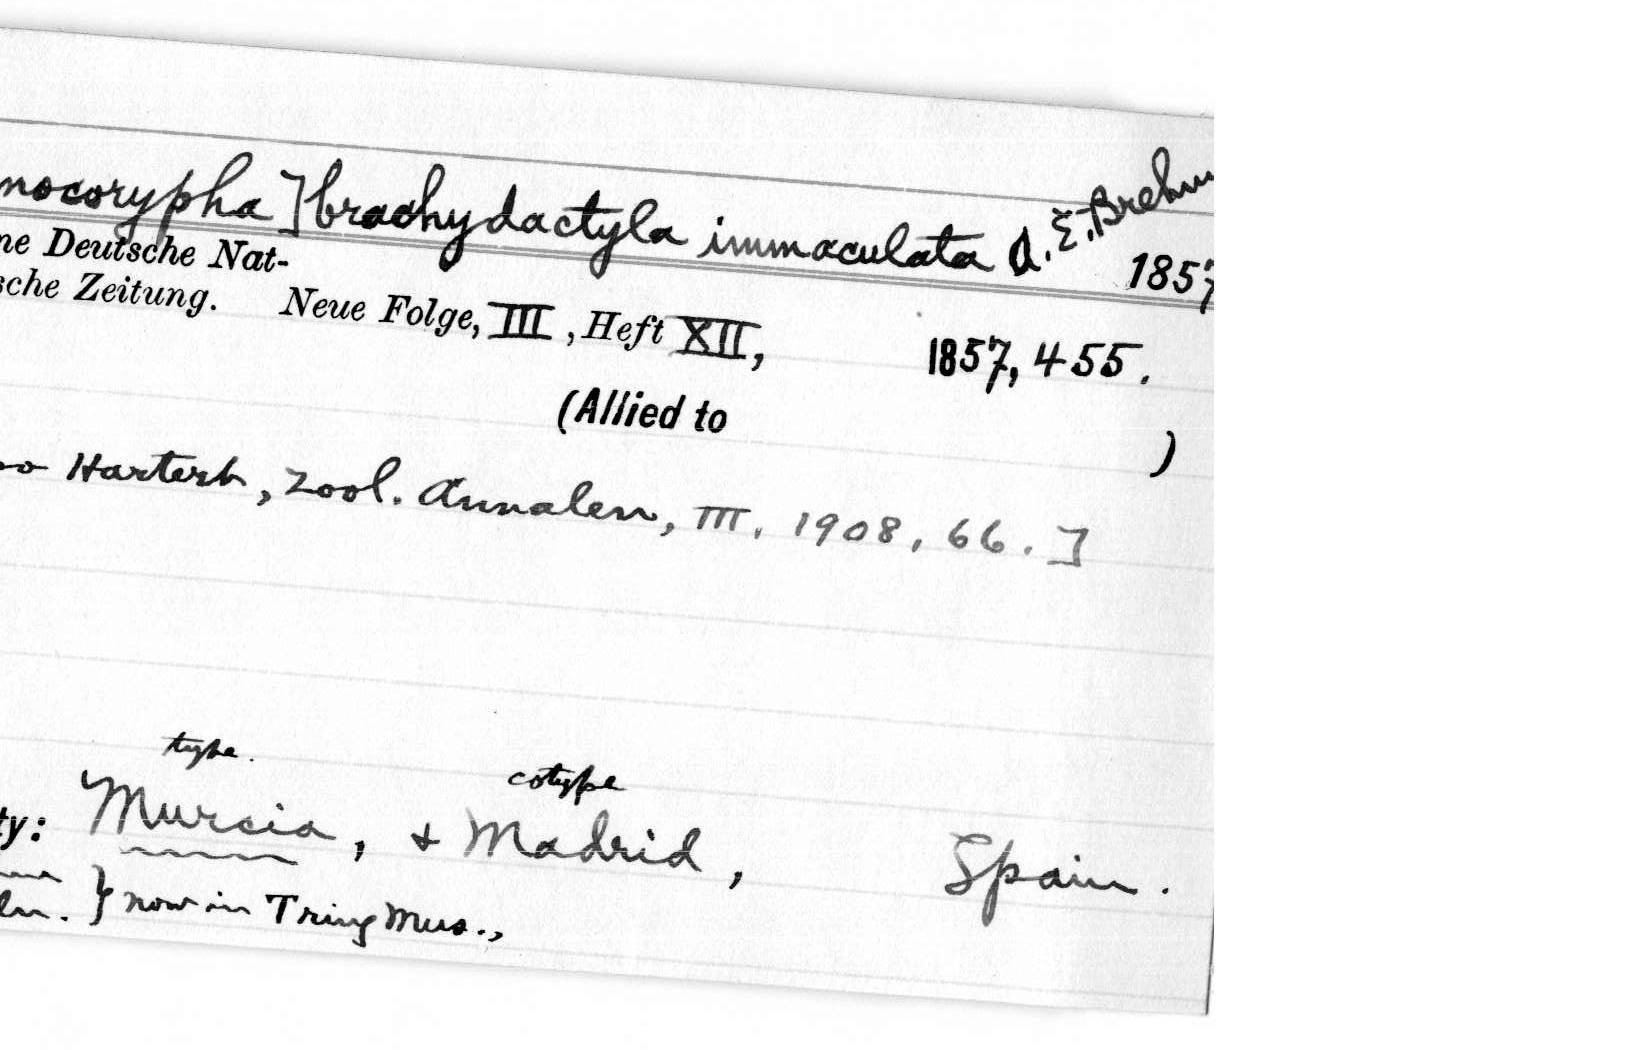 nocorypha] brachydactyla immaculata A. E. Brehm
1857
ne Deutsche Nat-
sche Zeitung. Neue Folge, III, Heft XII, 1857, 455.
(Allied to )
Hartert, Zool. Annalen, III, 1908, 66.]
type. cotype
ty: Murcia, & Madrid, Spain.
} now in Tring Mus.,